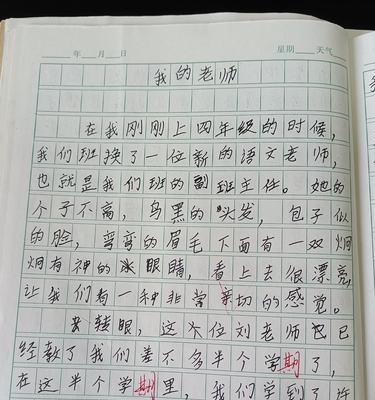 年 月 日 星期 天气
我的老师
在我刚刚上四年级的时候,
我们班换了一位新的语文老师,
也就是我们班的副班主任。她的
个子不高,乌黑的头发,包子似
的脸,弯弯的眉毛下面有一双炯
炯有神的眼睛,看上去很漂亮,
让我们有一种非常亲切的感觉。
转眼,这位刘老师已
经教了我们差不多半个学期了,
在这半个学期里,我们学到了许